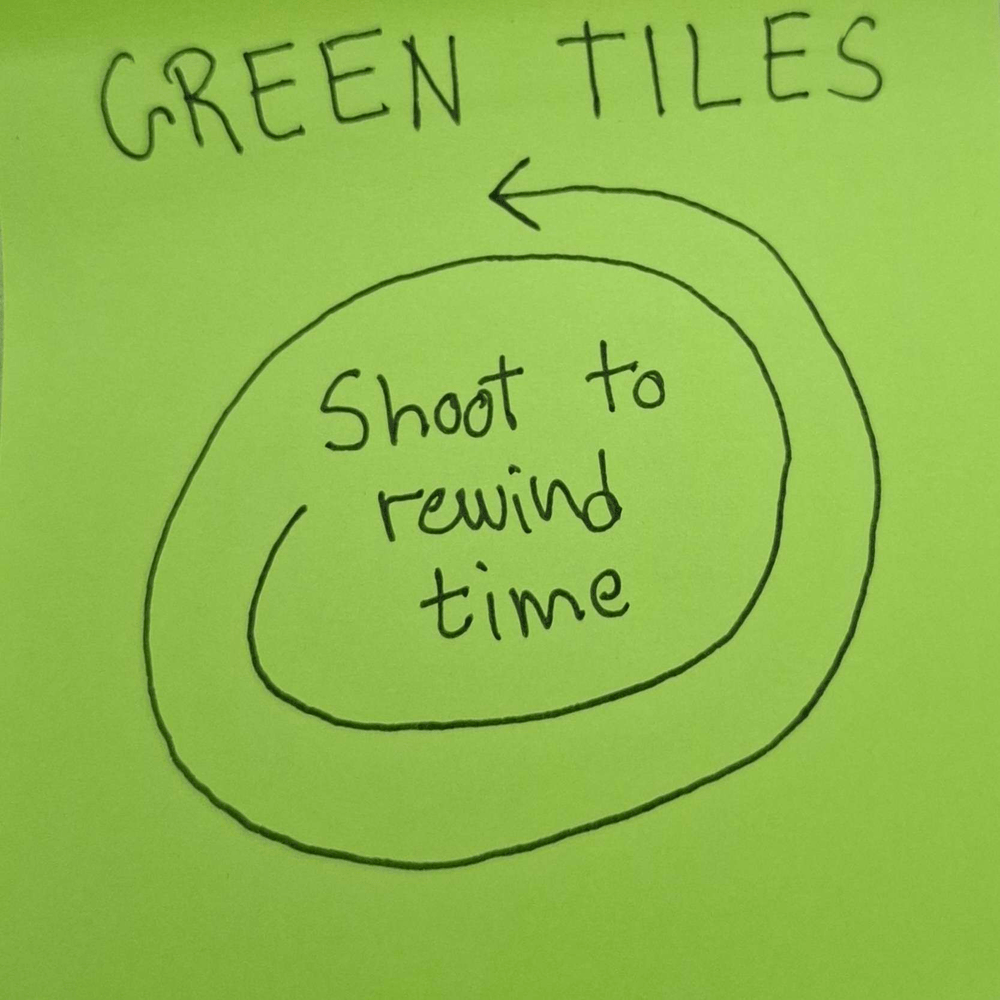 GREEN TILES
Shoot to
rewind
time